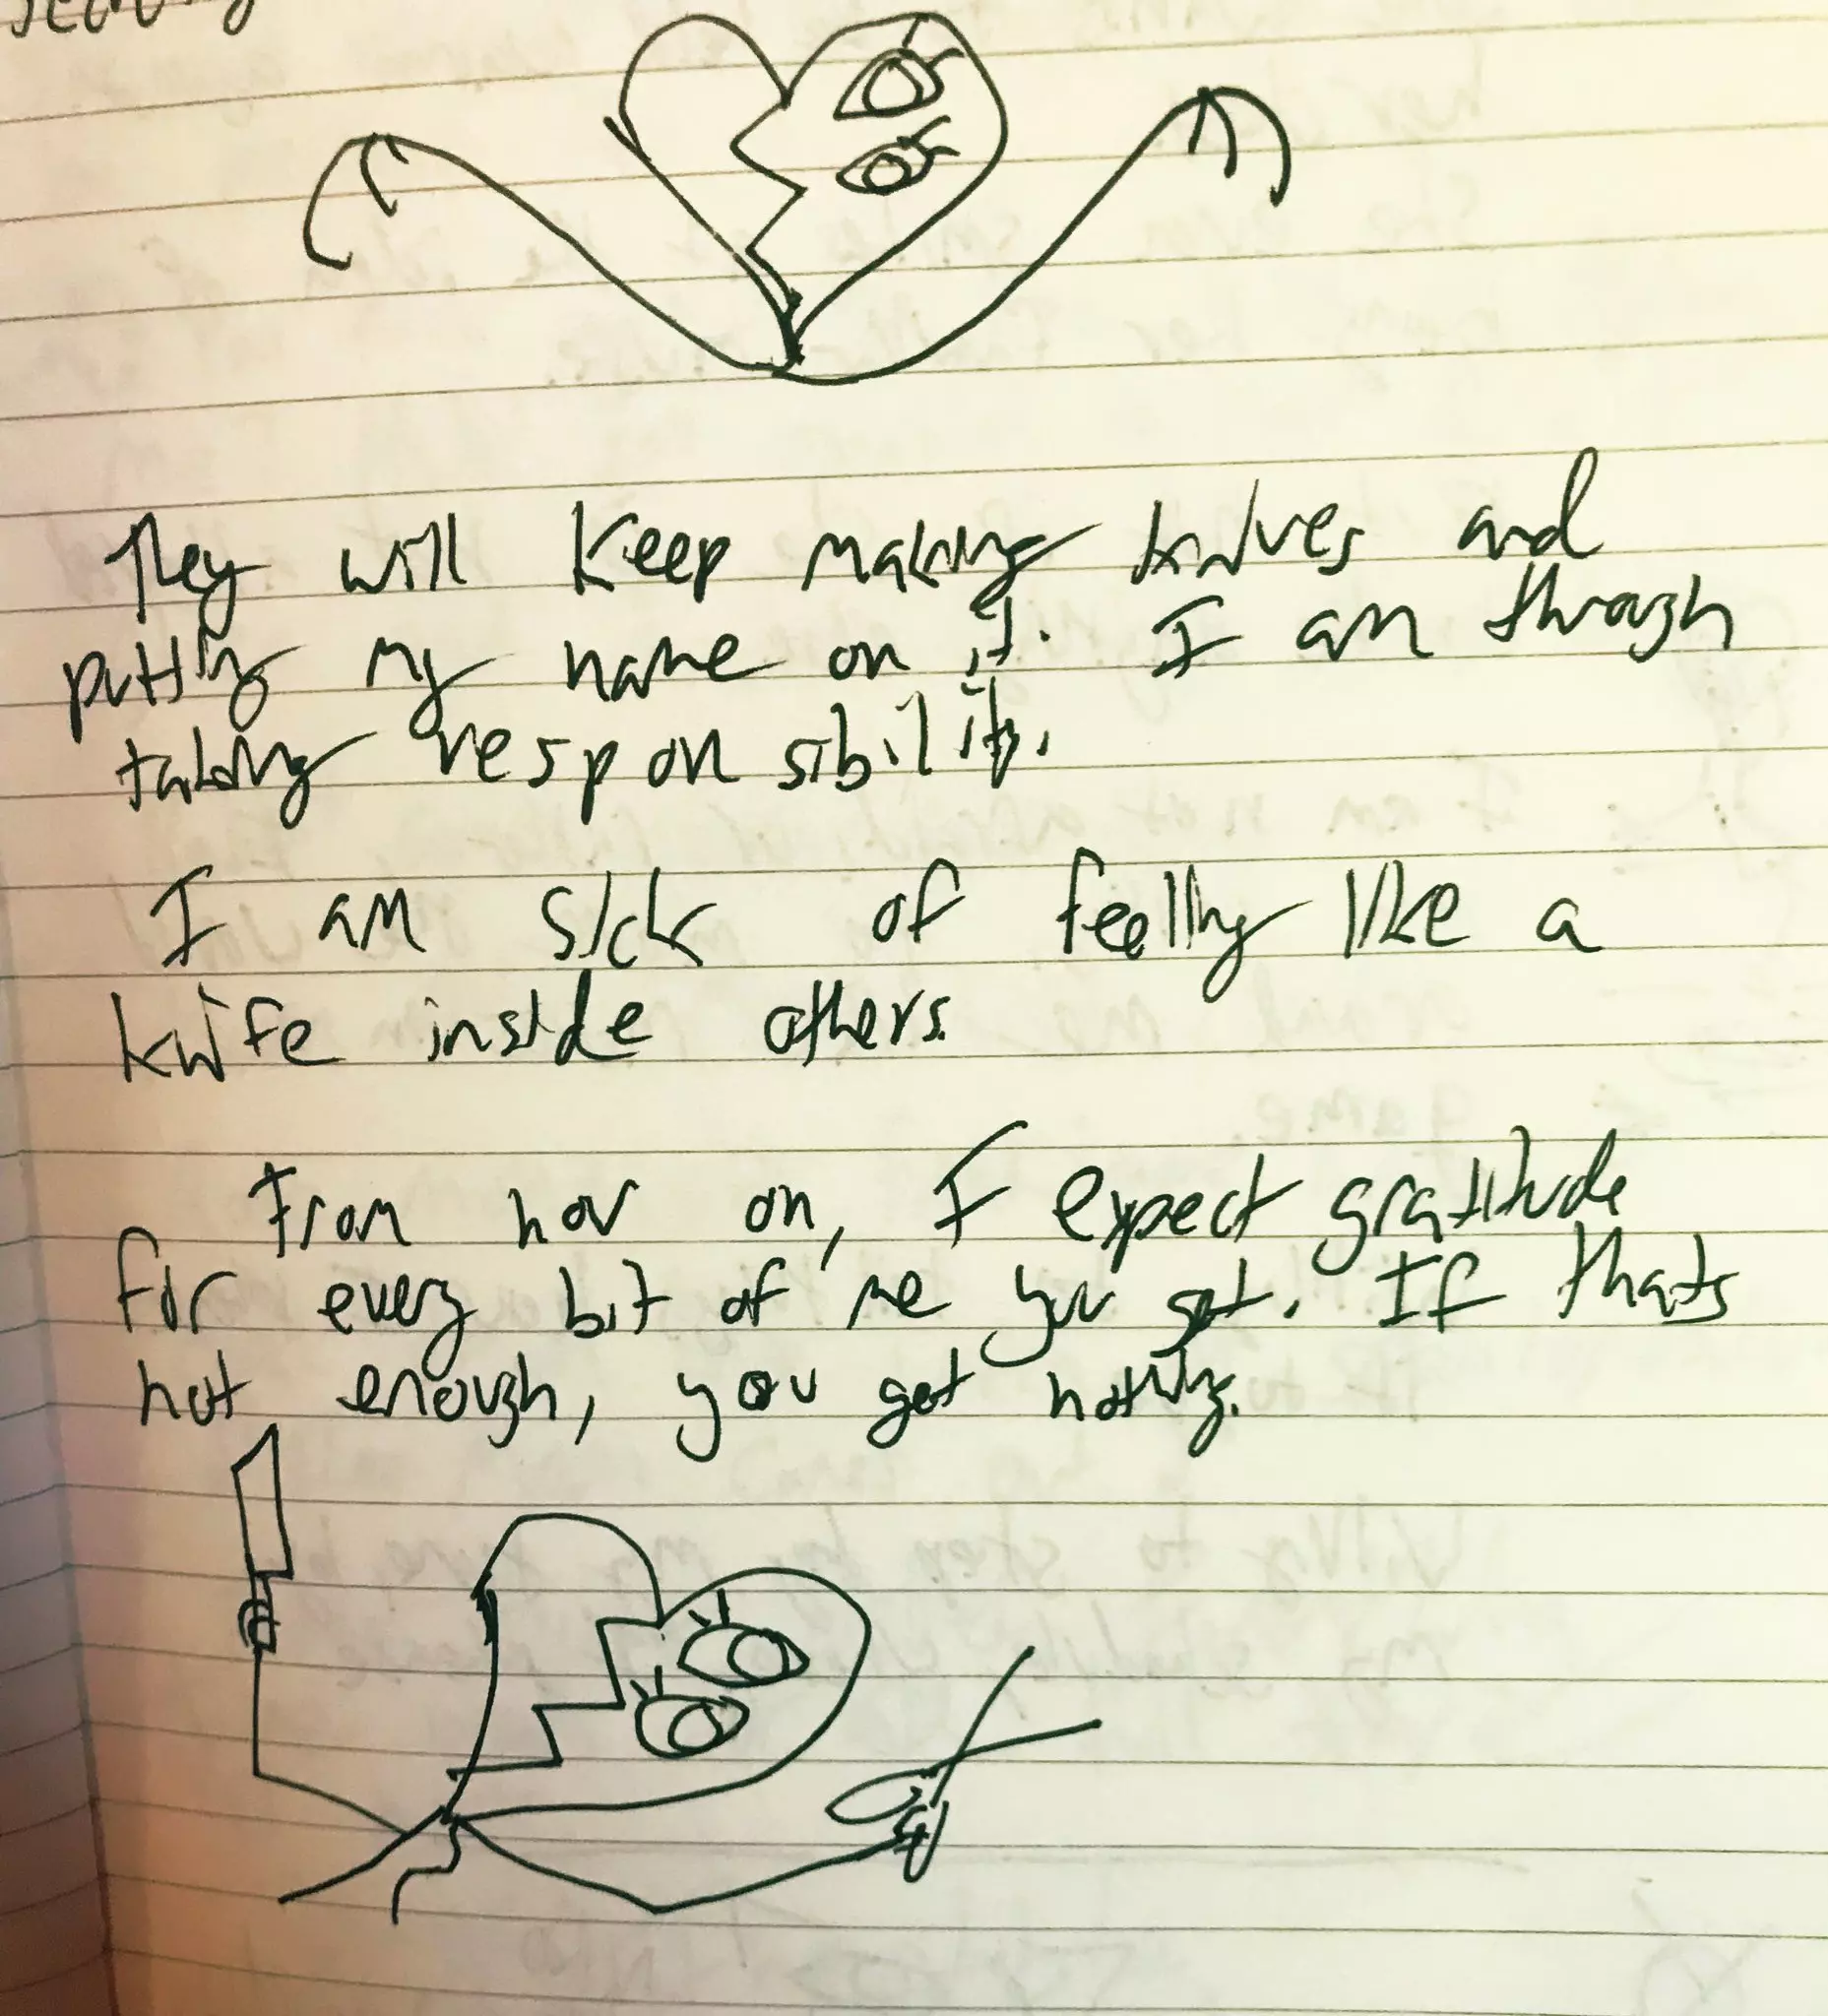 They will keep making knives and
putting my name on it. I am through
taking responsibility.
I am sick of feeling like a
knife inside others.
From now on, I expect gratitude
for every bit of me you get. If thats
not enough, you get nothing.